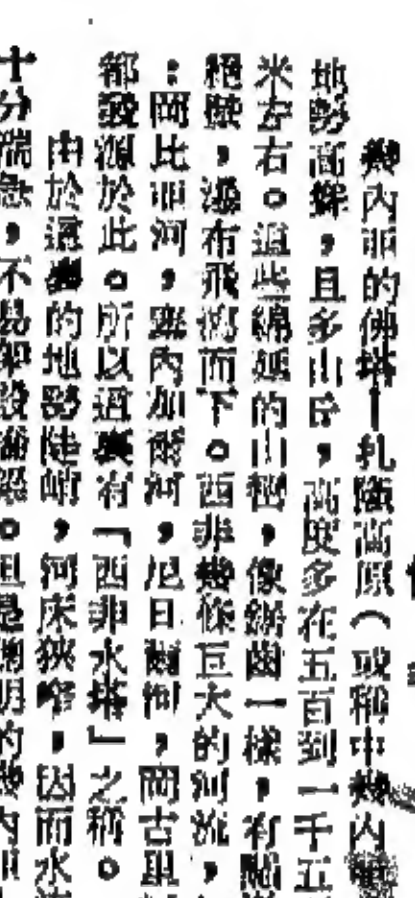 幾內亞的佛塔—扎隆高原（或稱中幾內亞
地勢高聳，且多山丘，高度多在五百到一千五
米左右。這些綿延的山巒，像鋸齒一樣，有
絕壁，瀑布飛瀉而下。西非幾條巨大的河流，
：岡比亞河，塞內加爾河，尼日爾河，岡古里
都發源於此。所以這裏有「西非水塔」之稱。
由於這裏的地勢陡峭，河床狹窄，因而水
十分湍急，不易架設橋樑。但是聰明的幾內亞